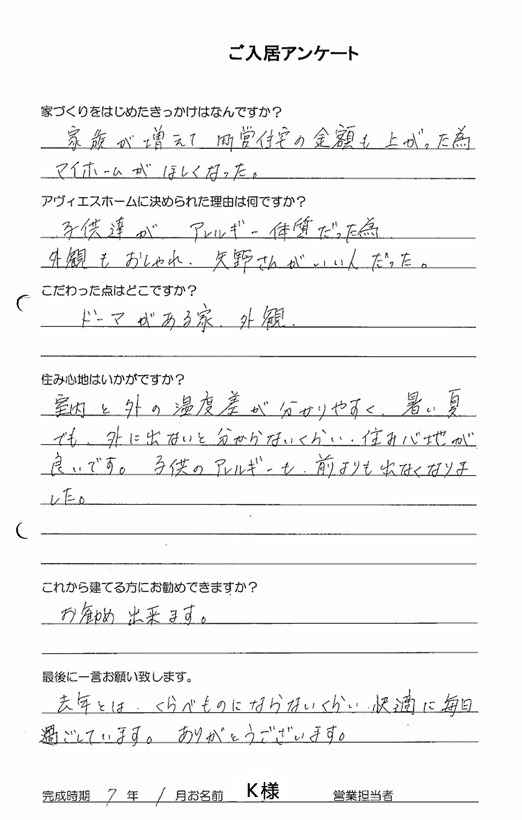 ご入居アンケート
家づくりをはじめたきっかけはなんですか?
家族が増えて 町営住宅の金額も上がった為
マイホームが ほしくなった。
アヴィエスホームに決められた理由は何ですか?
子供達が アレルギー体質だった為
外観もおしゃれ、矢野さんがいい人だった。
こだわった点はどこですか?
ドーマがある家、外観、
住み心地はいかがですか?
室内と外の温度差が分かりやすく、暑い夏
でも、外に出ないと分からないくらい、住み心地が
良いです。子供のアレルギーも、前よりも出なくなりま
した。
これから建てる方にお勧めできますか?
お勧め出来ます。
最後に一言お願い致します。
去年とは、くらべものにならないくらい、快適に毎日
過ごしています。ありがとうございます。
完成時期 7年 1月お名前 K様 営業担当者